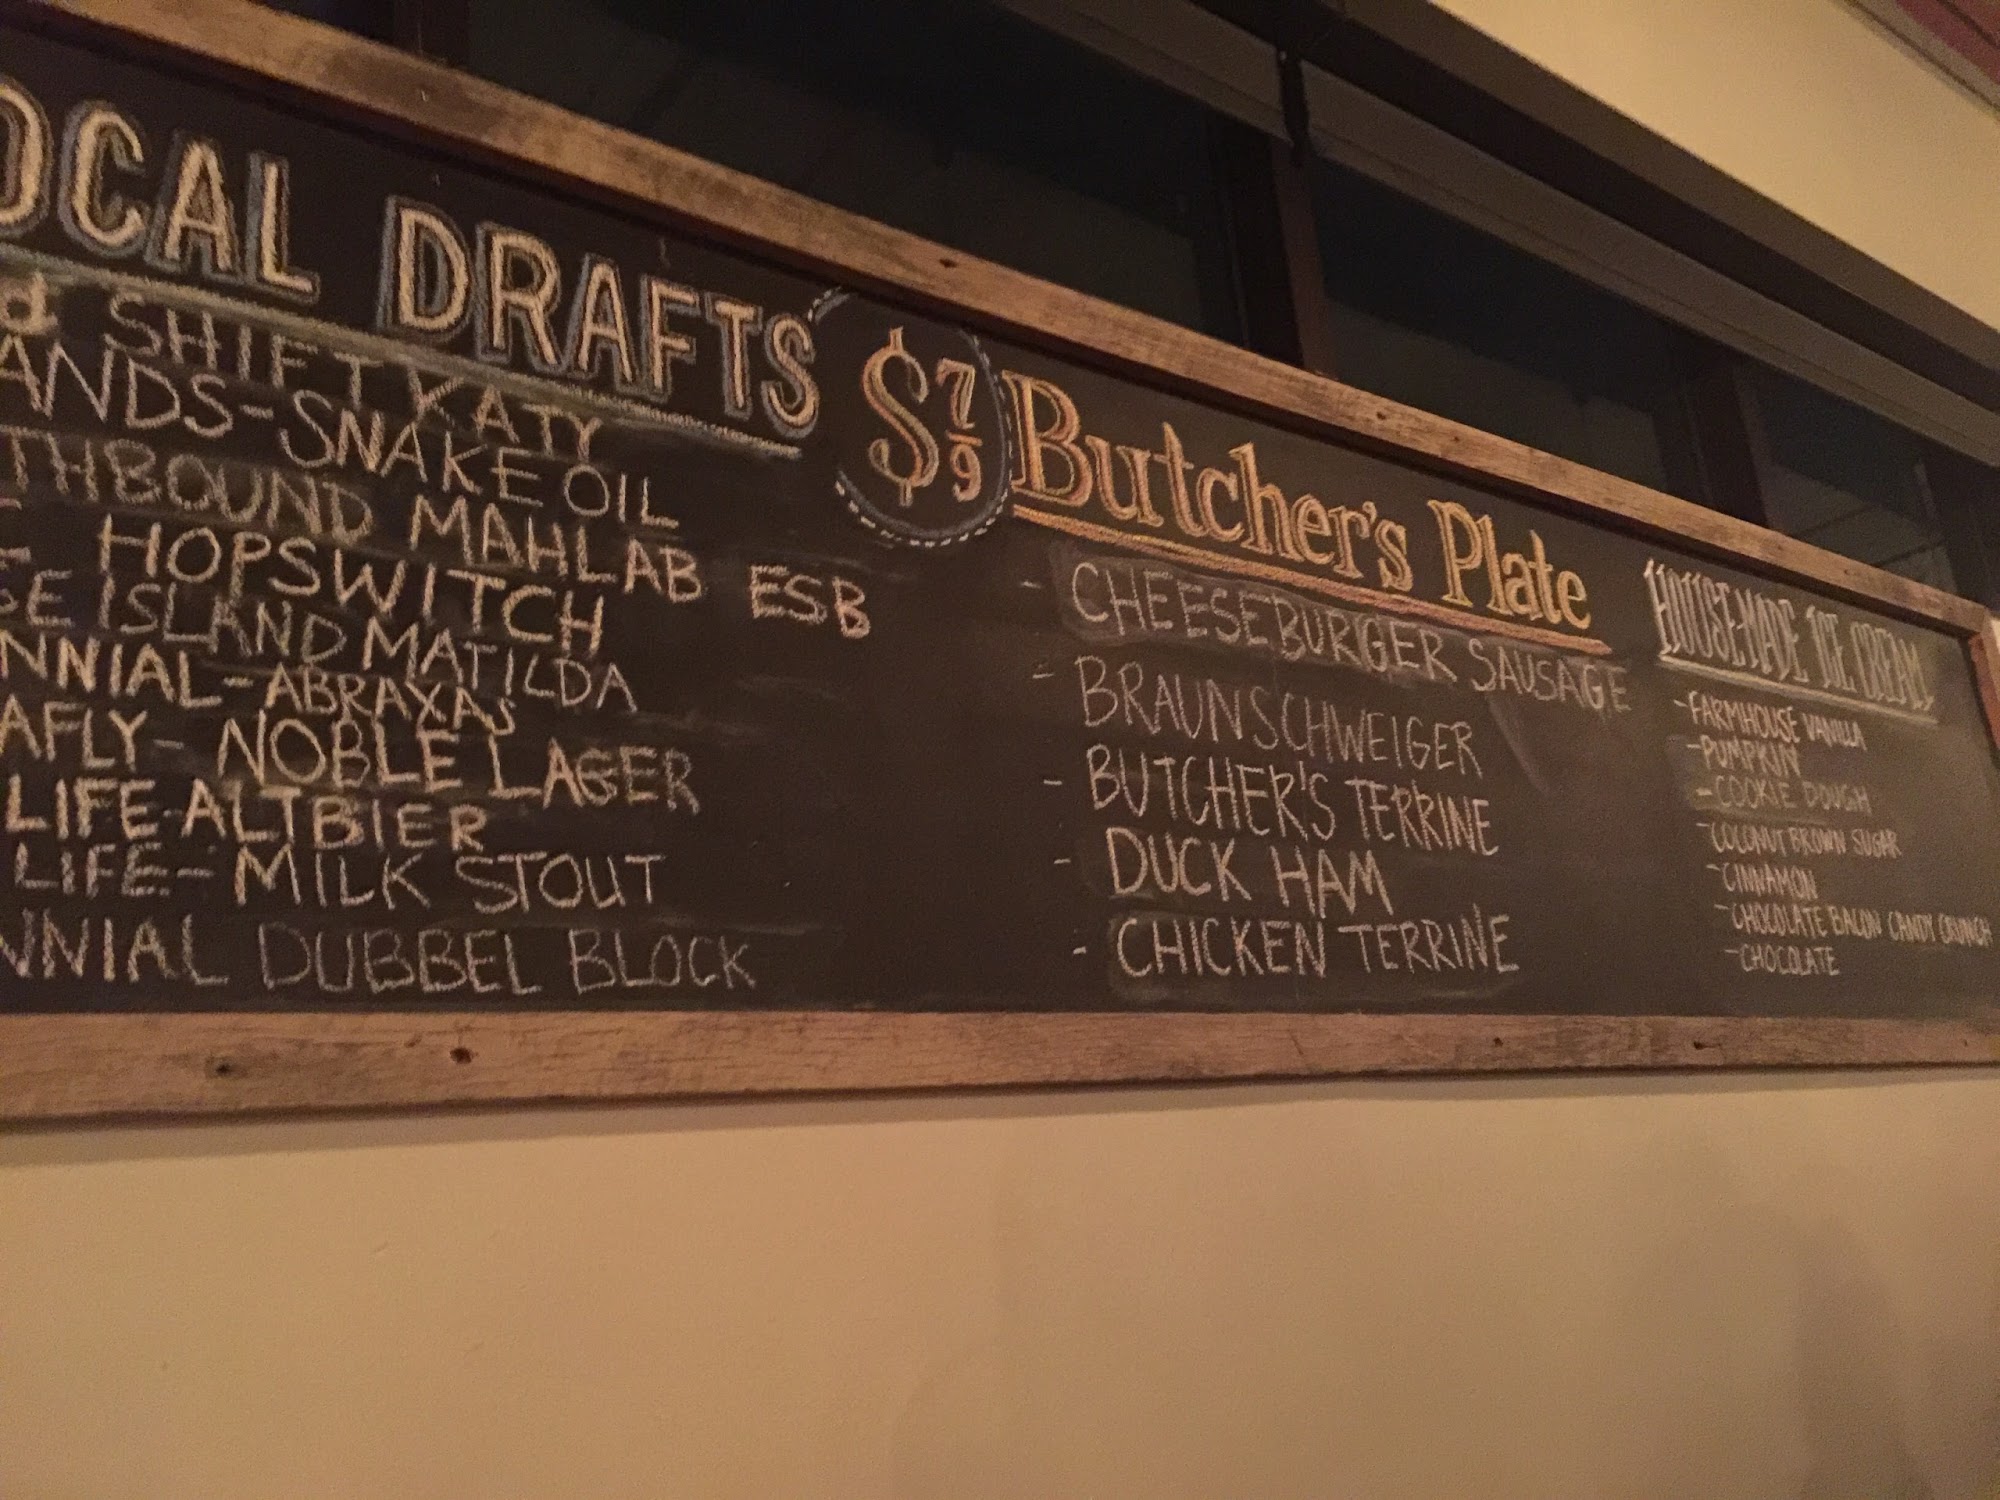 OCAL DRAFTS
d SHIFT KATY
ANDS - SNAKE OIL
THBOUND MAHLAB ESB
- HOPSWITCH
SE ISLAND MATILDA
NNIAL - ABRAXAS
AFLY - NOBLE LAGER
LIFE - ALTBIER
LIFE - MILK STOUT
NNIAL DUBBEL BLOCK
$7/9 Butcher's Plate
- CHEESEBURGER SAUSAGE
- BRAUNSCHWEIGER
- BUTCHER'S TERRINE
- DUCK HAM
- CHICKEN TERRINE
HOUSE-MADE ICE CREAM
- FARMHOUSE VANILLA
- PUMPKIN
- COOKIE DOUGH
- COCONUT BROWN SUGAR
- CINNAMON
- CHOCOLATE BACON CANDY CRUNCH
- CHOCOLATE